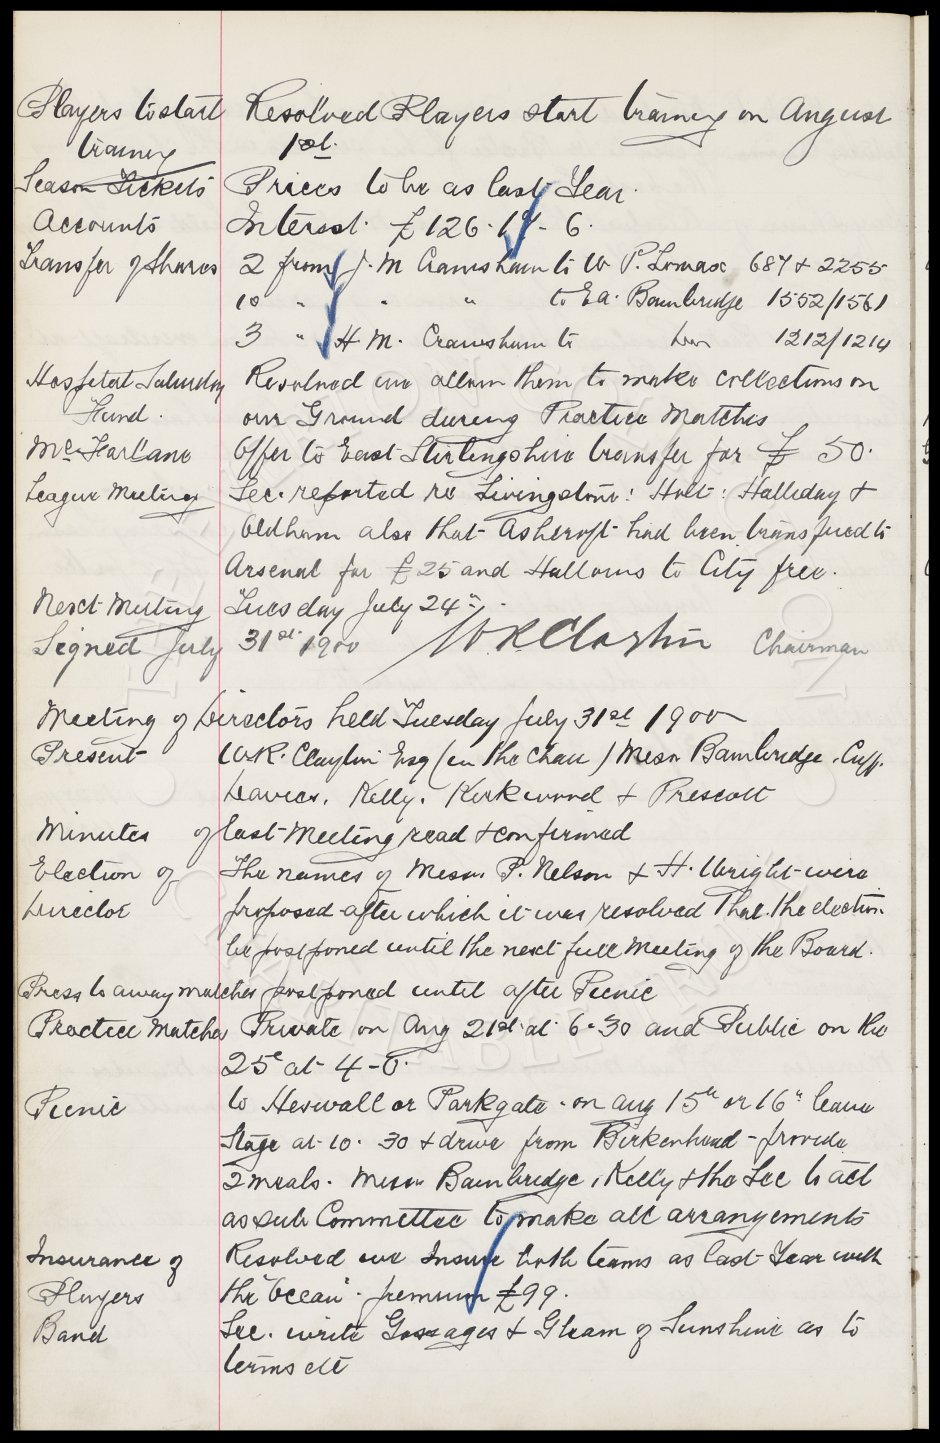 Players to start Resolved Players start training on August
training 1st.
Season Tickets Prices to be as last Year.
Accounts Interest. £126. - 6.
Transfer of Shares 2 from J. M Cramsham to W. P. Lomax 687 & 2255
10 " " " to Ea. Bainbridge 1552/1561
3 " H M. Cramsham to 1212/1214
Hospital Saturday Resolved we allow them to make collections on
Fund. our Ground during Practice Matches
McFarlane Offer to East Stirlingshire transfer for £50.
League Meeting Sec. reported re Livingstone: Holt: Halliday &
Oldham also that Ashcroft had been transfered to
Arsenal for £25 and Hallows to City free.
Next Meeting Tuesday July 24th.
Signed July 31st 1900 W. R. Clayton Chairman
Meeting of Directors held Tuesday July 31st 1900
Present W.R. Clayton Esq (in the chair) Messrs Bainbridge, Cuff.
Davies, Kelly, Kirkwood & Prescott
Minutes of last Meeting read & confirmed
Election of The names of Messrs P. Nelson & H. Wright were
Director proposed after which it was resolved that the election
be postponed until the next full Meeting of the Board.
Press to away matches postponed until after Picnic
Practice Matches Private on Aug 21st at 6-30 and Public on the
25th at 4-0.
Picnic to Heswall or Parkgate. on Aug 15th or 16th leave
Stage at 10.30 & drive from Birkenhead - provide
2 meals. Messrs Bainbridge, Kelly & the Sec to act
as sub Committee to make all arrangements
Insurance of Resolved we Insure both teams as last Year with
Players the "Ocean". premium £99.
Band Sec. write Gossages & Gleam of Sunshine as to
terms etc